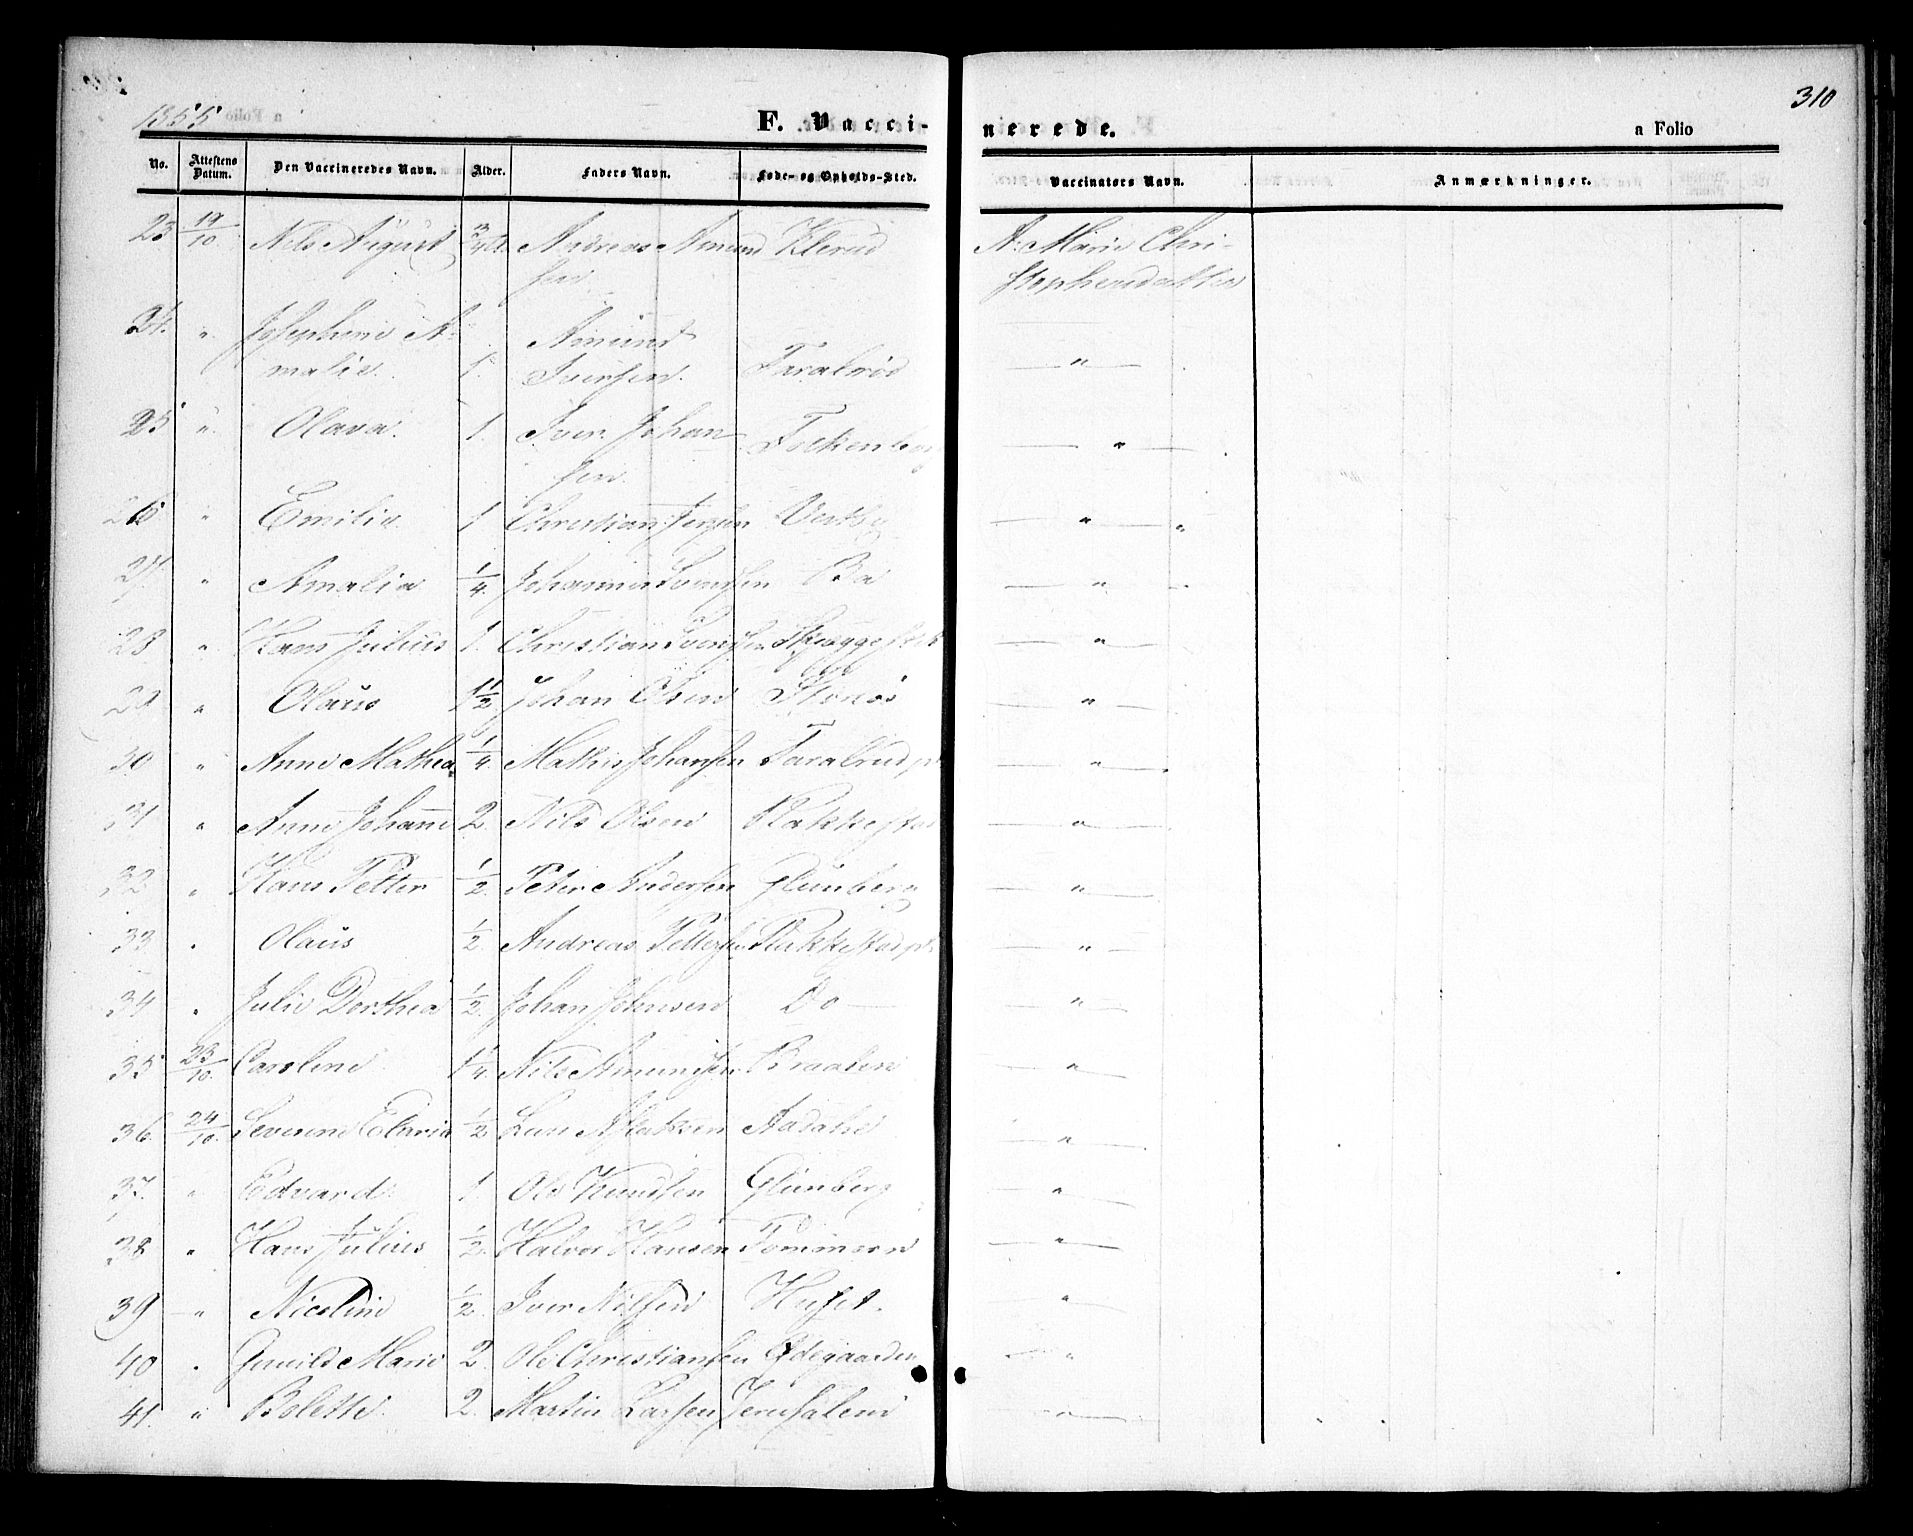 310
1855 F. Vaccinerede. a Folio
No. Attestens Datum. Den Vaccineredes Navn. Alder. Faders Navn. Føde- og Opholds-Sted. Vaccinators Navn. Anmærkninger.
23 19/10 Nils August Andreas Amund Klerud A: Marie Chri-
sen. stophersdatter
24. " Josephine A- Amund
malie. 1. Iversen. Taralrød — " —
25 " Olava. 1. Iver Johan — " —
sen.
26 " Emilie 1 Christian Jensen Vestby — " — "
27. " Amalia 1/4. Johannes Svensen Bø — " —
28 " Hans Julius 1. Christian Svensen — " —
29 " Olaus 1 1/2 Johan Olsen — " —
30 " Anne Mathea 1/4. Mathis Johansen Taralrud — " —
31 " Anne Johanne 2. Nils Olsen Rakkestad — " —
32 " Hans Petter 1/2. Peter Andersen Glenberg — " —
33 " Olaus 1/2. Andreas Pettersen Rakkestad — " —
34 " Julie Dorthea 1/2. Johan Johnsen Do — — " —
35 23/10. Caroline 1 1/4. Nils Amundsen Braaten — " —
36. 24/10. 1/2 Lars Aslaksen — " —
37. " Edvard 1. Ole Knudsen Glenberg — " —
38 " Hans Julius 1/2. Halvor Hansen Tømmeren — " —
39 — " Nicoline 1/2. Iver Nilsen Huset. — " —
40 " Gunild Marie 2. Ole Christiansen Ødegaarden — " —
41. " Bolette. 2. Martin Larsen Jerusalem — " —